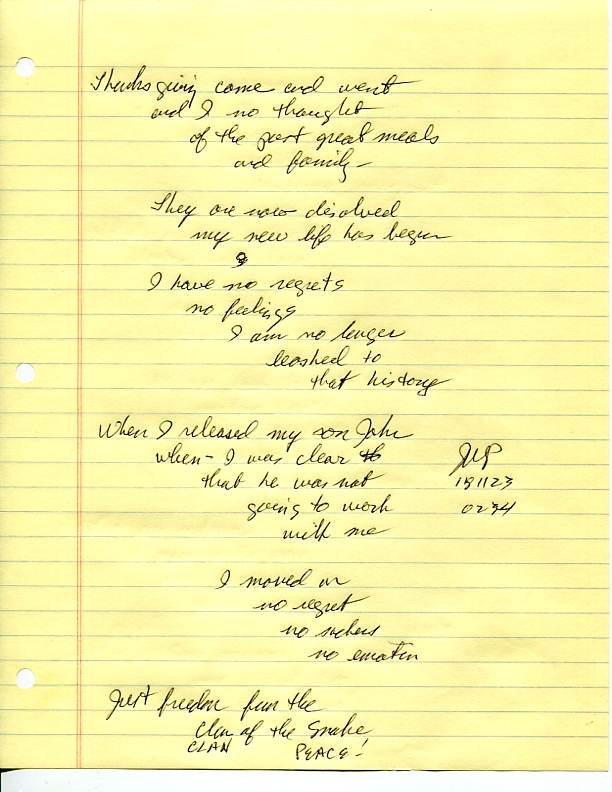 Thanksgiving come and went
and I no thought
of the past great meals
and family-
They are now disolved
my new life has begun
I have no regrets
no feelings
I am no longer
leashed to
that history
When I released my son John
when- I was clear
that he was not
going to work
with me
191123
0234
I moved on
no regret
no
no emotion
Just freedom from the
Clan of the Snake,
CLAN PEACE!